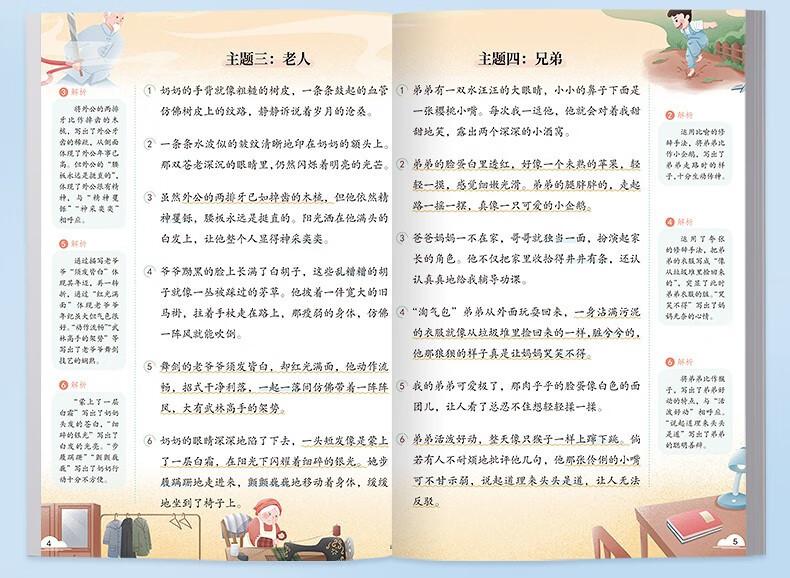 主题三：老人
① 奶奶的手背就像粗糙的树皮，一条条鼓起的血管
仿佛树皮上的纹路，静静诉说着岁月的沧桑。
② 一条条水波似的皱纹清晰地印在奶奶的额头上。
那双苍老深沉的眼睛里，仍然闪烁着明亮的光芒。
③ 虽然外公的两排牙已如掉齿的木梳，但他依然精
神矍铄，腰板永远是挺直的。阳光洒在他满头的
白发上，让他整个人显得神采奕奕。
④ 爷爷黝黑的脸上长满了白胡子，这些乱糟糟的胡
子就像一丛被踩过的茅草。他披着一件宽大的旧
马褂，拄着手杖走在路上，那瘦弱的身体，仿佛
一阵风就能吹倒。
⑤ 舞剑的老爷爷须发皆白，却红光满面，他动作流
畅，招式干净利落，一起一落间仿佛带着一阵阵
风，大有武林高手的架势。
⑥ 奶奶的眼睛深深地陷了下去，一头短发像是蒙上
了一层白霜，在阳光下闪耀着细碎的银光。她步
履蹒跚地走进来，颤颤巍巍地移动着身体，缓缓
地坐到了椅子上。
3 解析
将外公的两排
牙比作掉齿的木
梳，写出了外公牙
齿的稀疏，从侧面
体现了外公年事已
高。但外公的“腰
板永远是挺直的”，
体现了外公很有精
神，与“精神矍
铄”“神采奕奕”
相呼应。
5 解析
通过描写老爷
爷“须发皆白”体
现其年迈，再一转
折，通过“红光满
面”体现老爷爷
年纪虽大但气色很
好。“动作流畅”“武
林高手的架势”等
写出了老爷爷舞剑
技艺的娴熟。
6 解析
“蒙上了一层
白霜”写出了奶奶
头发的苍白，“细
碎的银光”写出了
白发的光亮。“步
履蹒跚”“颤颤巍
巍”写出了奶奶行
动十分不方便。
4
主题四：兄弟
① 弟弟有一双水汪汪的大眼睛，小小的鼻子下面是
一张樱桃小嘴。每次我一逗他，他就会对着我甜
甜地笑，露出两个深深的小酒窝。
② 弟弟的脸蛋白里透红，好像一个未熟的苹果，轻
轻一摸，感觉细嫩光滑。弟弟的腿胖胖的，走起
路一摇一摆，真像一只可爱的小企鹅。
③ 爸爸妈妈一不在家，哥哥就独当一面，扮演起家
长的角色。他不仅把家里收拾得井井有条，还认
认真真地给我辅导功课。
④ “淘气包”弟弟从外面玩耍回来，一身沾满污泥
的衣服就像从垃圾堆里捡回来的一样，脏兮兮的，
他那狼狈的样子真是让妈妈哭笑不得。
⑤ 我的弟弟可爱极了，那肉乎乎的脸蛋像白色的面
团儿，让人看了总忍不住想轻轻揉一揉。
⑥ 弟弟活泼好动，整天像只猴子一样上蹿下跳。倘
若有人不耐烦地批评他几句，他那张伶俐的小嘴
可不甘示弱，说起道理来头头是道，让人无法
反驳。
2 解析
运用比喻的修
辞手法，将弟弟比
作小企鹅，写出了
弟弟走路时的样
子，十分生动传神。
4 解析
运用了夸张
的修辞手法，把弟
弟的衣服写成“像
从垃圾堆里捡回来
的”，突显了此时
弟弟衣服的脏。“哭
笑不得”写出了妈
妈无奈的心情。
6 解析
将弟弟比作猴
子，写出了弟弟好
动的特点，与“活
泼好动”相呼应。
“说起道理来头头
是道”写出了弟弟
的聪明善辩。
5